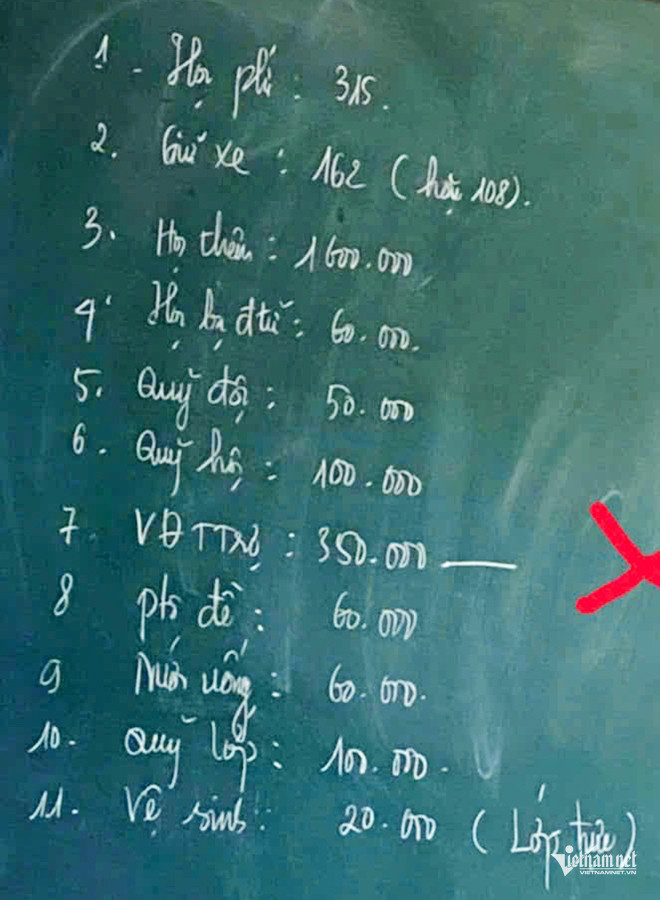 1 - Học phí : 315.
2. Giữ xe : 162 (hoặc 108).
3. Học thêm : 1600.000
4. Học bạ đtử : 60.000.
5. Quỹ đội : 50.000
6. Quỹ hội : 100.000
7 VĐTTrợ : 350.000
8 phô đề : 60.000
9 Nước uống : 60.000.
10. Quỹ lớp : 100.000.
11. Vệ sinh : 20.000 ( Lớp thuê)
vietnamnet
VIETNAMNET.VN